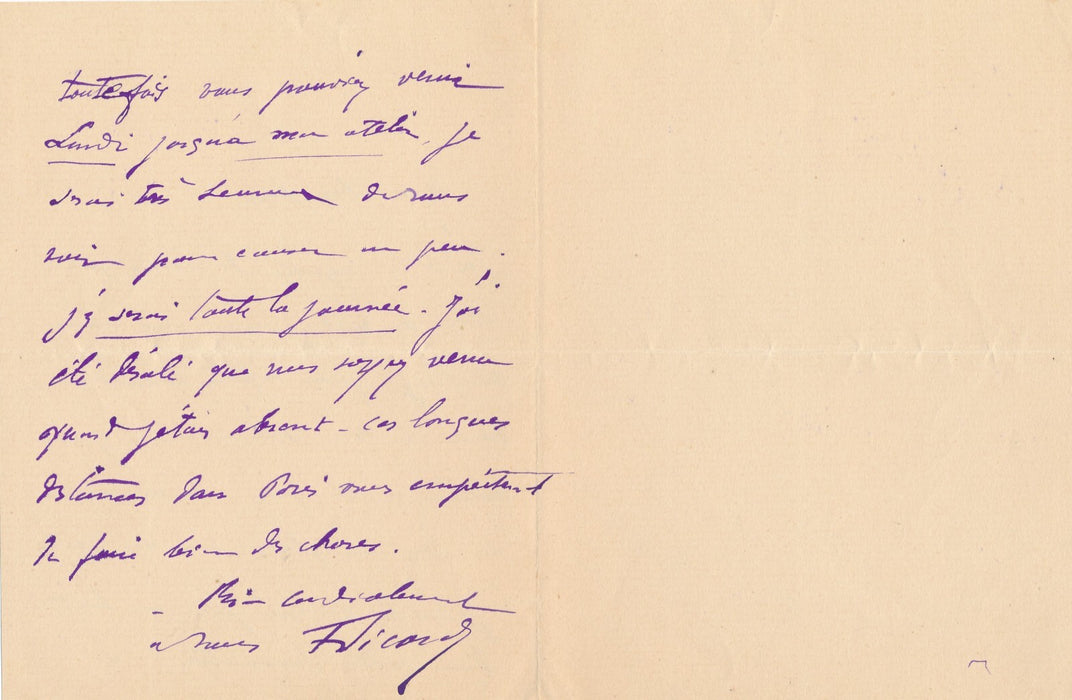 toutefois vous pouviez venir
Lundi jusqu'à mon atelier, je
serai très heureux de vous
voir pour causer un peu.
j'y serai toute la journée. J'ai
été désolé que vous soyez venu
quand j'étais absent - ces longues
distances dans Paris nous empêchent
de faire bien des choses.
- Bien cordialement
à vous